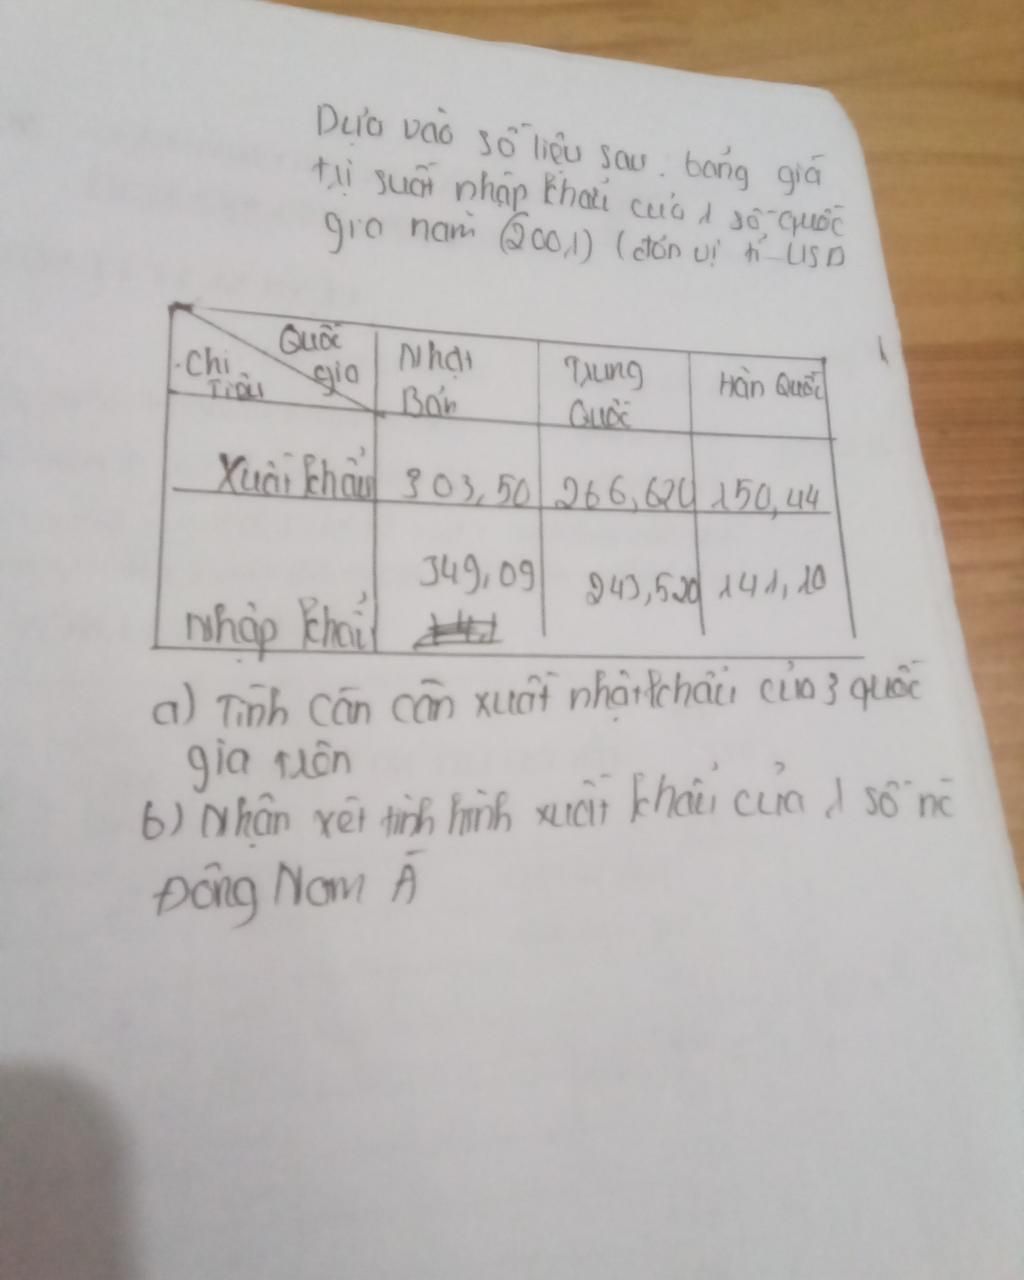 Dựa vào số liệu sau. bảng giá
trị suất nhập khẩu của 1 số quốc
gia năm (2001) (đơn vị tỉ USD
Quốc gia
Chi Tiêu
Nhật Bản
Trung Quốc
Hàn Quốc
Xuất khẩu 303,50 266,620 150,44
Nhập khẩu 349,09 243,520 141,10
a) Tính cán cân xuất nhập khẩu của 3 quốc
gia trên
b) Nhận xét tình hình xuất khẩu của 1 số nc
Đông Nam Á